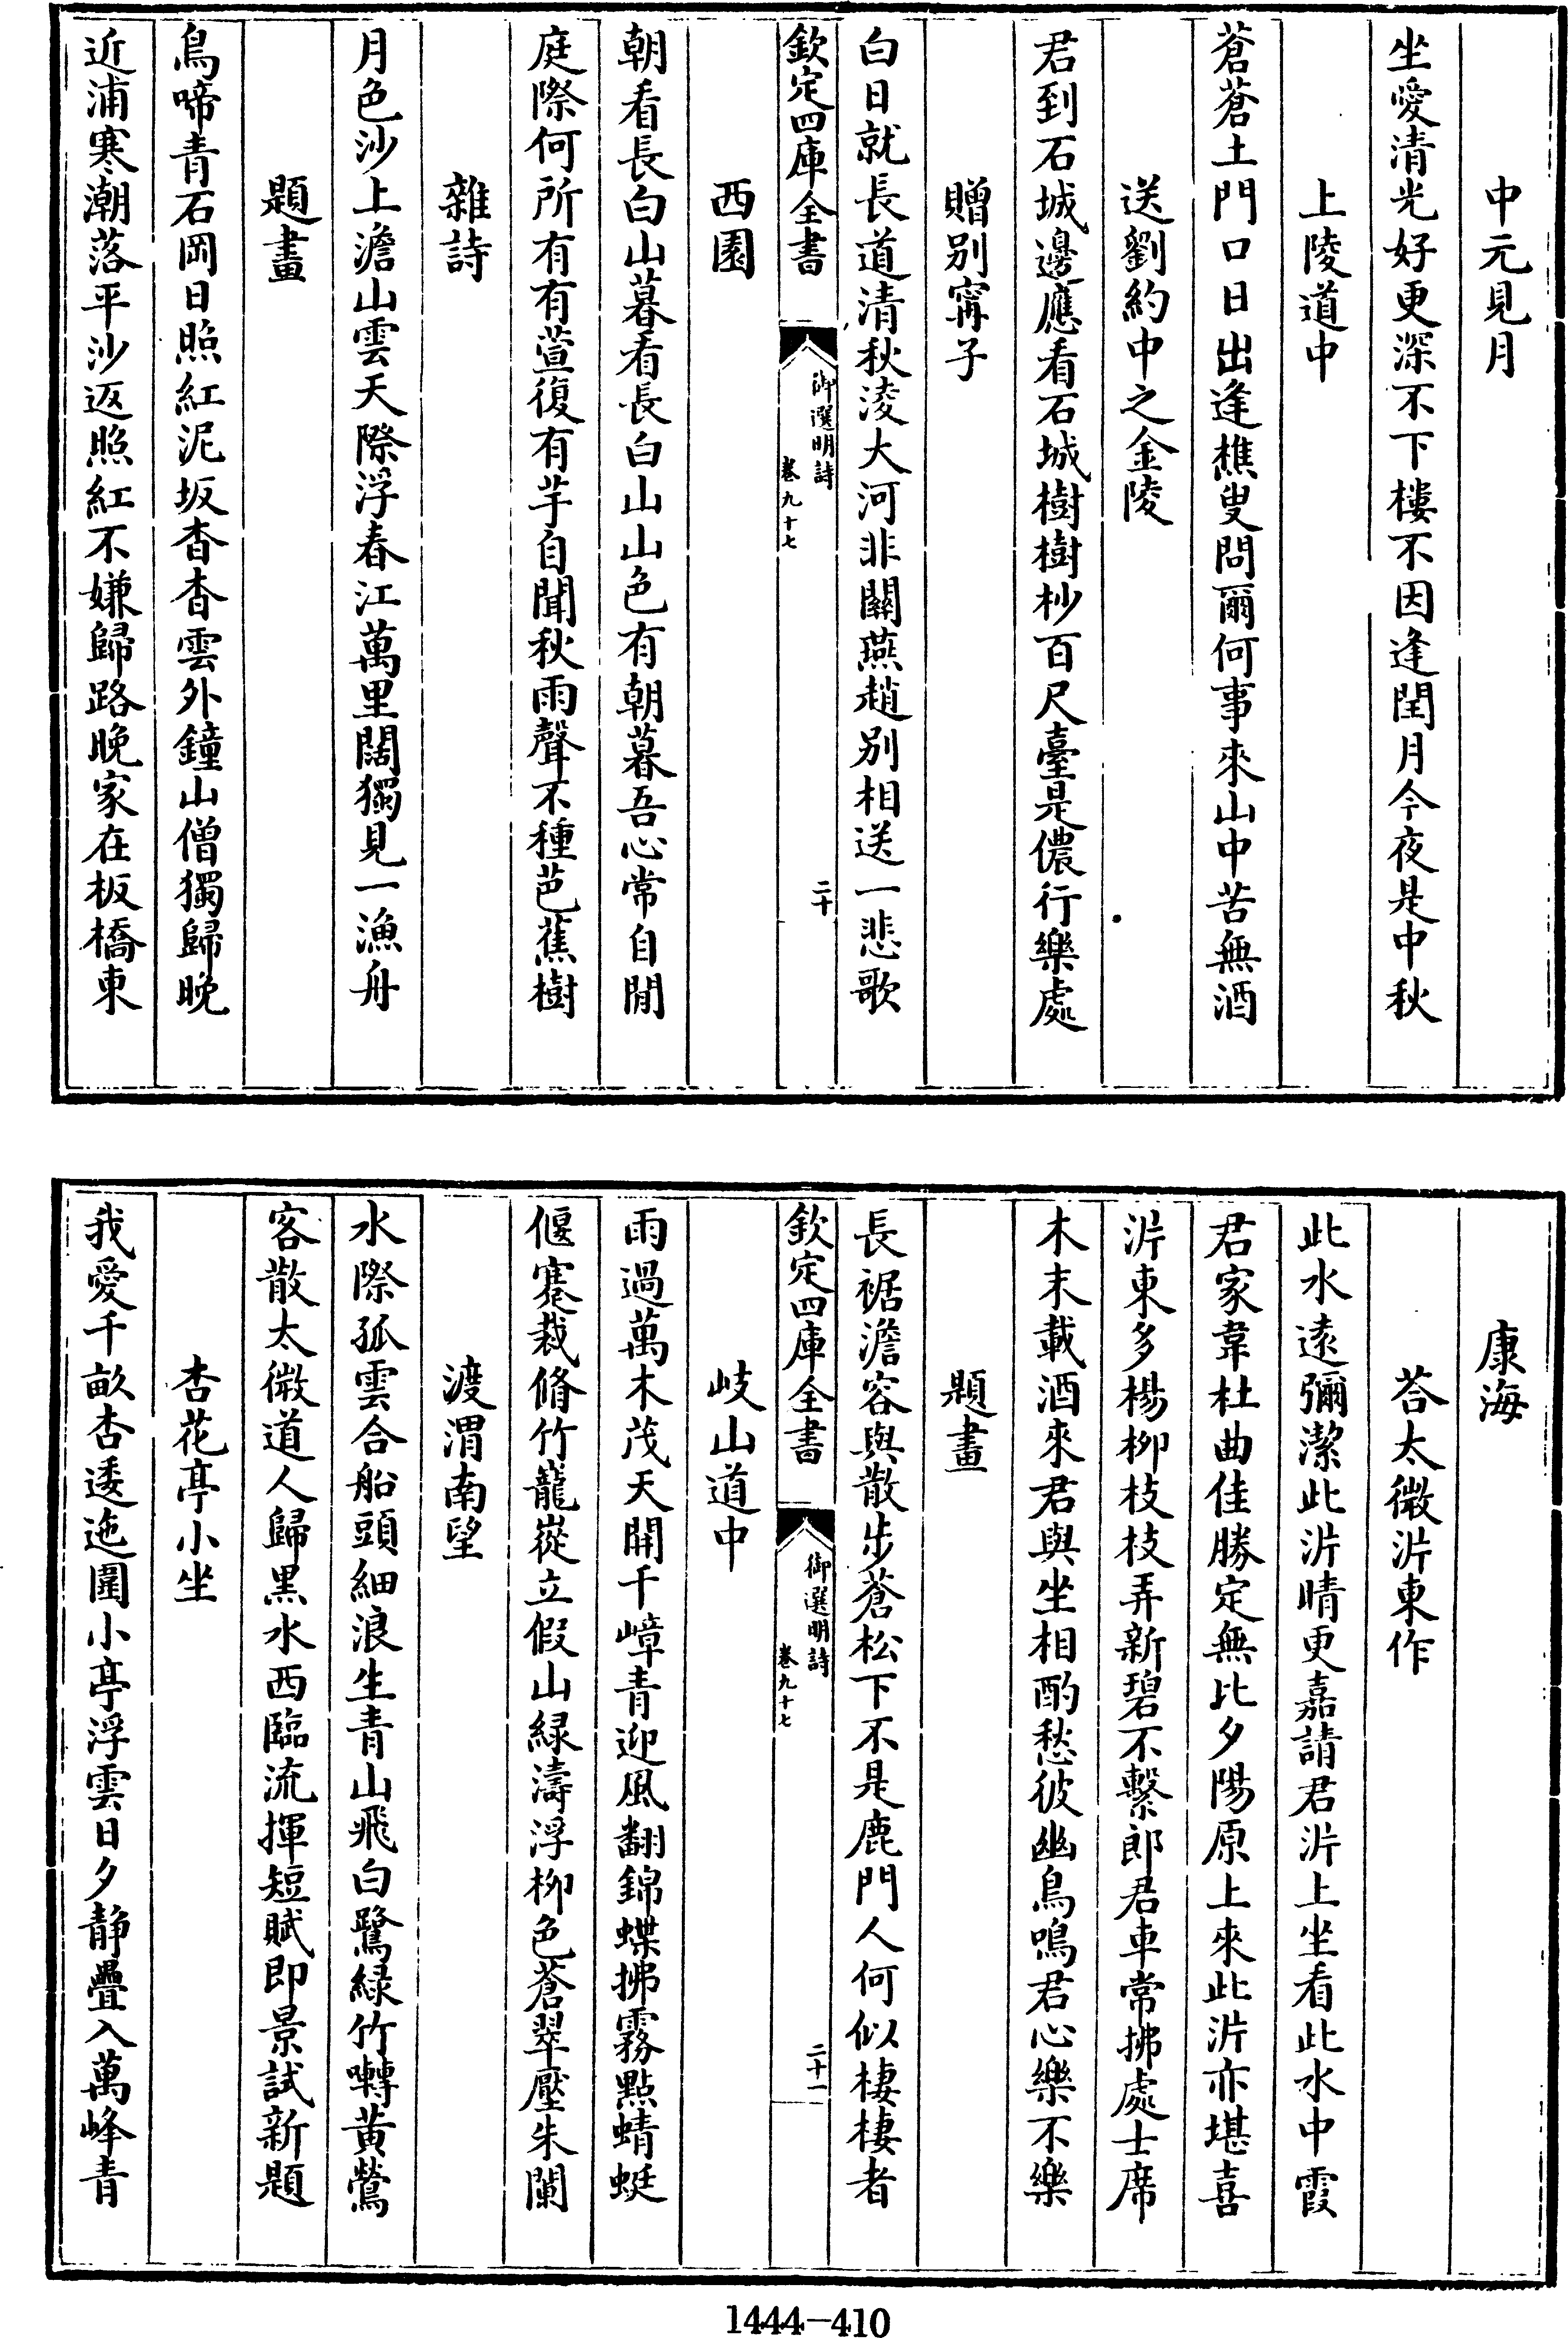 中元見月
坐愛清光好更深不下樓不因逢閏月今夜是中秋
上陵道中
蒼蒼土門口日出逢樵叟問爾何事來山中苦無酒
送劉約中之金陵
君到石城邊應看石城樹樹杪百尺臺是儂行樂處
贈别甯子
白日就長道清秋淩大河非關燕趙别相送一悲歌
欽定四庫全書
御選明詩
卷九十七
二十
西園
朝看長白山暮看長白山山色有朝暮吾心常自閒
庭際何所有有萱復有芋自聞秋雨聲不種芭蕉樹
雜詩
月色沙上澹山雲天際浮春江萬里闊獨見一漁舟
題畫
鳥啼青石岡日照紅泥坂杳杳雲外鐘山僧獨歸晚
近浦寒潮落平沙返照紅不嫌歸路晚家在板橋東
康海
荅太微沜東作
此水遠彌潔此沜晴更嘉請君沜上坐看此水中霞
君家韋杜曲佳勝定無比夕陽原上來此沜亦堪喜
沜東多楊柳枝枝弄新碧不繫郎君車常拂處士席
木末載酒來君與坐相酌愁彼幽鳥鳴君心樂不樂
題畫
長裾澹容與散步蒼松下不是鹿門人何似棲棲者
欽定四庫全書
御選明詩
卷九十七
二十一
岐山道中
雨過萬木茂天開千嶂青迎風翻錦蝶拂霧點蜻蜓
偃蹇栽脩竹巃嵸立假山緑濤浮柳色蒼翠壓朱闌
渡渭南望
水際孤雲合船頭細浪生青山飛白鷺緑竹囀黄鶯
客散太微道人歸黑水西臨流揮短賦即景試新題
杏花亭小坐
我愛千畝杏逶迤圍小亭浮雲日夕静疊入萬峰青
1444-410